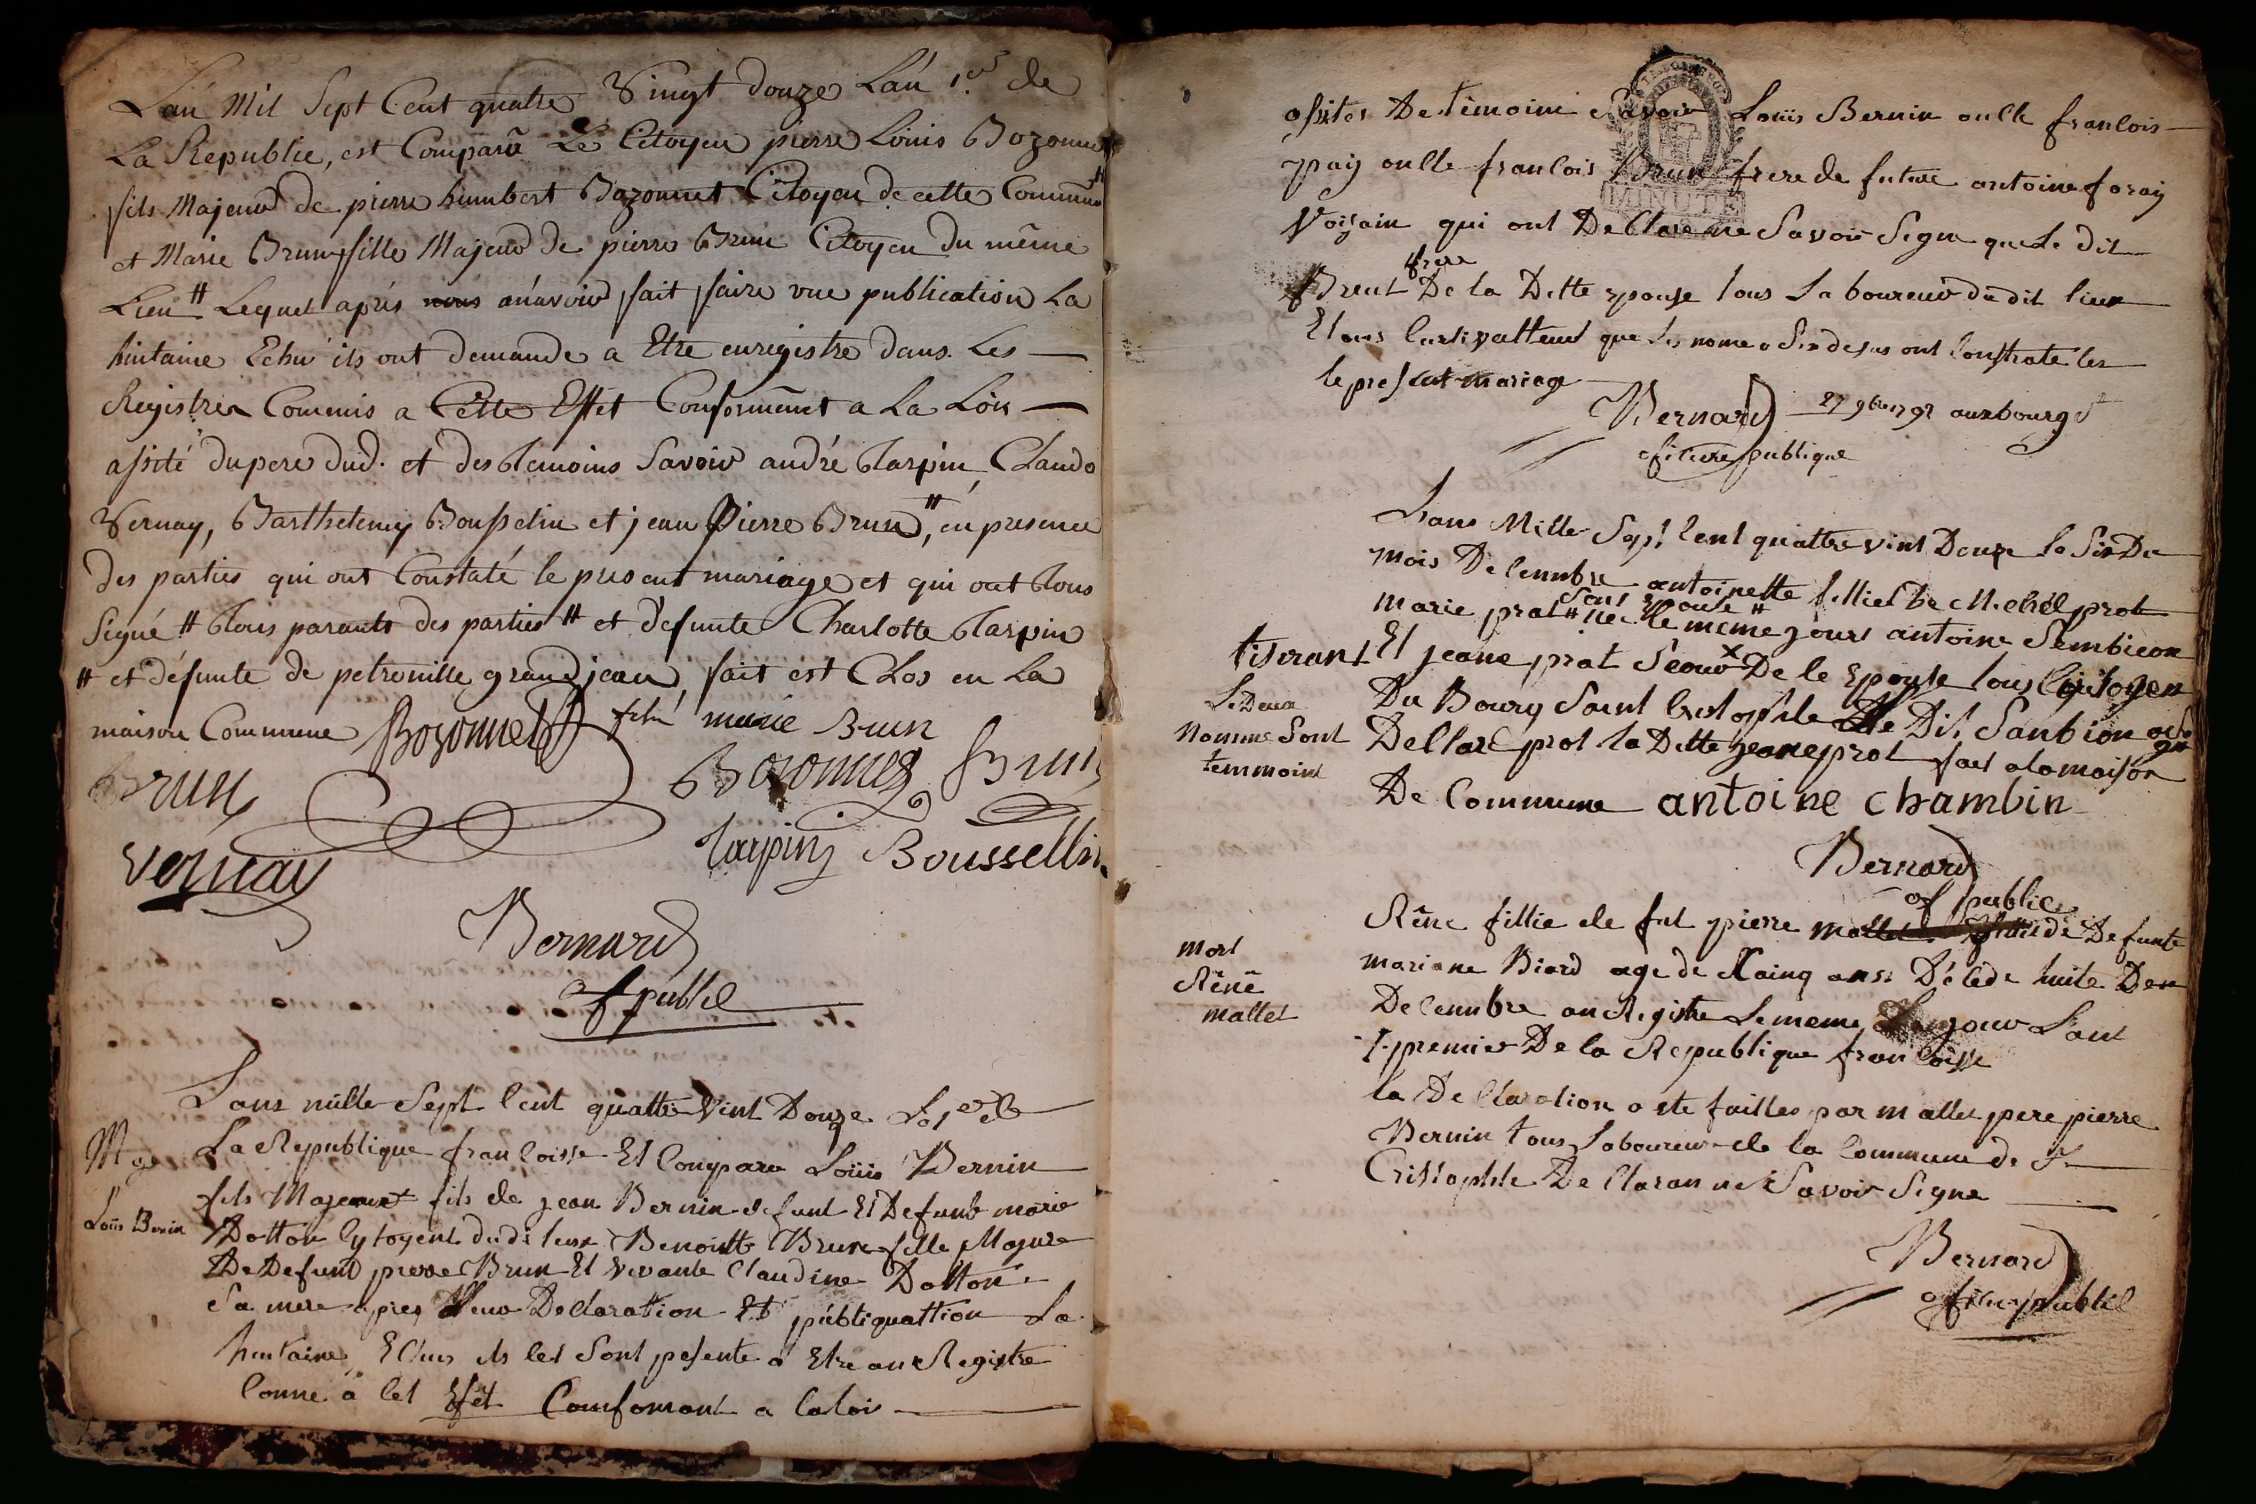 L'an Mil Sept Cent quatre Vingt douze L'an 1.er de
La Republic, est Comparû Le Citoyen pierre Louis Bozonnet
fils Majeur de pierre humbert Bozonnet Citoyen de cette Commune
et Marie Brun fille Majeur de pierre Brun Citoyen du même
Lieu # Lequel aprés avoir fait faire une publication La
huitaine Echu ils ont demande a Etre enregistre dans Les
Registres Commis a Cette Effet Conformément a La Loix
assité du pere dud. et des temoins Savoir andré tarpin, Claude
Vernay, Barthelemy Bousselin et jean Pierre Brun #, en presence
des parties qui ont Constaté le present mariage et qui ont tous
Signé # tous parants des parties # et defunte Charlotte tarpin
# et défunte de petronille grandjean, fait est Clos en La
maison Commune Bozonnet fils marie Brun
Brun Bozonnet Brun
Vernay tarpin Bousselin
Bernard
of public
Lans mille Sept Cent quattre Vint Douze Le 1er de
Mge La Republique francoisse Et Conparu Loüis Bernin
Loüis Bernin
fils Majeur fils de jean Bernin defunt Et Defunt marie
Dotton Cytoyent dudi leux Benoitte Brun fille Majure
De Defunt pierre Brun Et Vivante Claudine Dotton
Sa mere apres Leur Declaration Et publiquattion La
huitaine Echus ils Ses Sont presente a Etre anRegistre
Conne a Cet Efet Confomant a la loi
assites De temoint Savoir Loüis Bernin francois
pay francois Brun frere de future antoine foray
Voizain qui ont De Clare ne Savoir Signe que Le dit
Brunt frere De la Ditte epouse tous Laboureur du dit lieux
Et ous Cultivatteur que les nome Sis desus ont Constrate les
le present mariage
Bernard 27 9bre 1792 aux bourg St
oficiere publique
Lans Mille Sept Cent quattre vint Douze Le Six De
mois De Cenmbre antoinette fillies De Michel prot
Marie prat Sons Epouse # nee Le meme jours antoine Sembicon
tiserant Et jeane prat Seour De le Epouse tous Citoyen
Le Deux Nomme Sont temmoint
Du Bourg Saint Cristophle Le Dit Sanbion
De Clare prot la Ditte jeane prot fait a la maison
De Commune antoine chambin
Bernard
of public
mort Rêne mallet
Rêne fillie de fut pierre mallet Defunte
mariane Biard age de Cainq ans Décede huite De
De Cenmbre anRegistre Le meme jour L'ant
1 premier De la Republique francoisse
la De Claration a ete faittes par mallet pere pierre
Bernin tous Laboureur de la Commune de St
Cristophle De Claran ne Savoir Signe
Bernard
oficier public